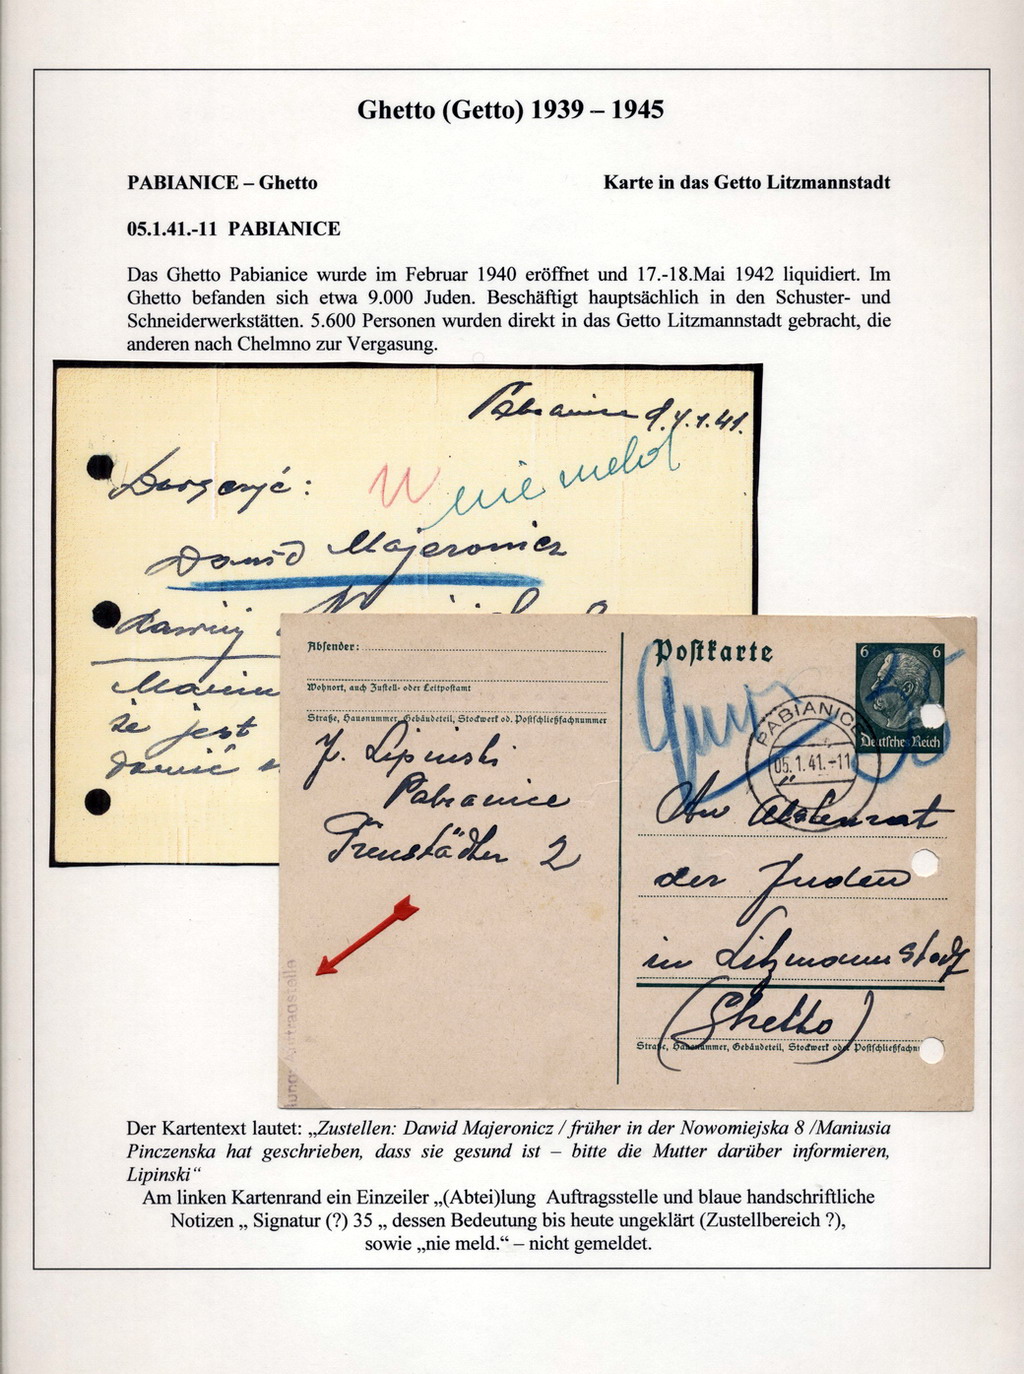 Ghetto (Getto) 1939 – 1945
PABIANICE – Ghetto
Karte in das Getto Litzmannstadt
05.1.41.-11 PABIANICE
Das Ghetto Pabianice wurde im Februar 1940 eröffnet und 17.-18.Mai 1942 liquidiert. Im
Ghetto befanden sich etwa 9.000 Juden. Beschäftigt hauptsächlich in den Schuster- und
Schneiderwerkstätten. 5.600 Personen wurden direkt in das Getto Litzmannstadt gebracht, die
anderen nach Chelmno zur Vergasung.
Pabianice 1.41.
Doręczyć:
nie meld
Dawid Majeronicz
dawniej
że jest
Absender:
Wohnort, auch Zustell- oder Leitpostamt
Straße, Hausnummer, Gebäudeteil, Stockwerk od. Postschließfachnummer
J. Lipinski
Pabianice
2
lung Auftragstelle
Postkarte
6 6
Deutsches Reich
PABIANICE
05.1.41.-11
An Ältestenrat
der Juden
in Litzmannstadt
(Ghetto)
Straße, Hausnummer, Gebäudeteil, Stockwerk oder Postschließfachn
Der Kartentext lautet: „Zustellen: Dawid Majeronicz / früher in der Nowomiejska 8 /Maniusia
Pinczenska hat geschrieben, dass sie gesund ist – bitte die Mutter darüber informieren,
Lipinski“
Am linken Kartenrand ein Einzeiler „(Abtei)lung Auftragsstelle und blaue handschriftliche
Notizen „ Signatur (?) 35 „ dessen Bedeutung bis heute ungeklärt (Zustellbereich ?),
sowie „nie meld.“ – nicht gemeldet.